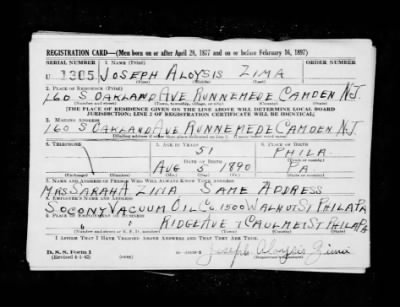 REGISTRATION CARD—(Men born on or after April 28, 1877 and on or before February 16, 1897)
SERIAL NUMBER 1. NAME (Print) ORDER NUMBER
U 1305 JOSEPH ALOYSIS ZIMA
2. PLACE OF RESIDENCE (Print)
160 S OAKLAND AVE RUNNEMEDE CAMDEN N.J.
(Number and street) (Town, township, village, or city) (County) (State)
[THE PLACE OF RESIDENCE GIVEN ON THE LINE ABOVE WILL DETERMINE LOCAL BOARD
JURISDICTION; LINE 2 OF REGISTRATION CERTIFICATE WILL BE IDENTICAL]
3. MAILING ADDRESS
160 S OAKLAND AVE RUNNEMEDE CAMDEN N.J.
4. TELEPHONE 5. AGE IN YEARS 6. PLACE OF BIRTH
51 PHILA
DATE OF BIRTH
AUG 5 1890 PA
(Exchange) (Number) (Mo.) (Day) (Yr.) (State or country)
7. NAME AND ADDRESS OF PERSON WHO WILL ALWAYS KNOW YOUR ADDRESS
MRS SARAH A ZIMA SAME ADDRESS
8. EMPLOYER'S NAME AND ADDRESS
SOCONY VACUUM OIL CO 1500 WALNUT ST PHILA PA
9. PLACE OF EMPLOYMENT OR BUSINESS
RIDGE AVE ST PHILA PA
(Number and street or R. F. D. number) (Town) (County) (State)
I AFFIRM THAT I HAVE VERIFIED ABOVE ANSWERS AND THAT THEY ARE TRUE.
D. S. S. Form 1
(Revised 4-1-42) Joseph Aloysis Zima